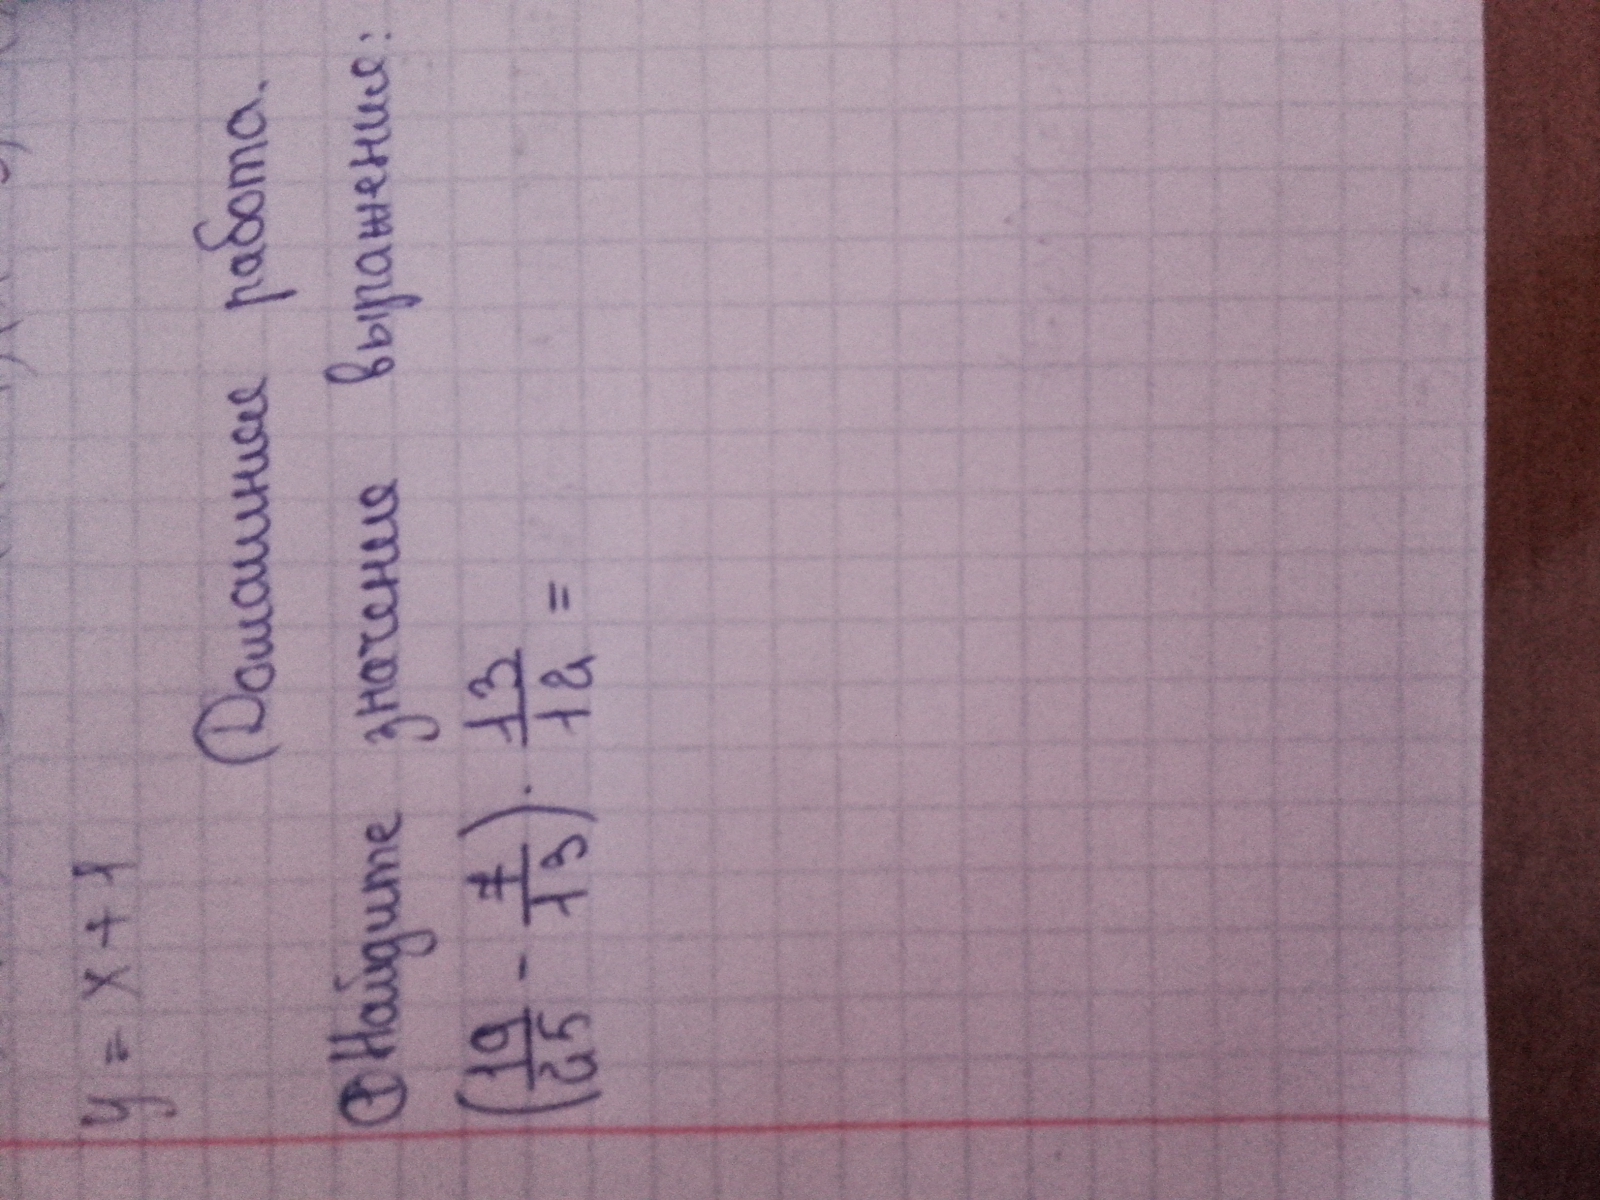 y = x + 1
Домашнее работа.
① Найдите значение выражение:
(19/25 - 7/13) · 13/12 =